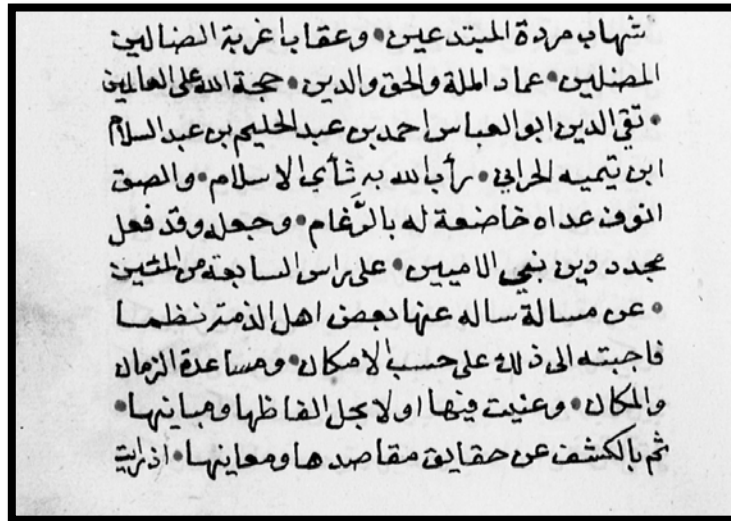 شهاب مردة المبتدعين • وعقاب اغربة الضالين
المضلين • عماد الملة والحق والدين • حجة الله على العالمين
• تقي الدين ابو العباس احمد بن عبد الحليم بن عبد السلام
ابن تيميه الحراني • رأب الله به ثأي الاسلام • والصق
انوف عداه خاضعة له بالرَّغام • وجعله وقد فعل
مجدد دين نبي الاميين • على راس السابعة من المئين
• عن مسالة ساله عنها بعض اهل الذمة نظما
فاجبته الى ذلك على حسب الامكان • ومساعدة الزمان
والمكان • وعنيت فيها اولا بحل الفاظها ومبانيها •
ثم بالكشف عن حقايق مقاصدها ومعانيها • اذ رايت